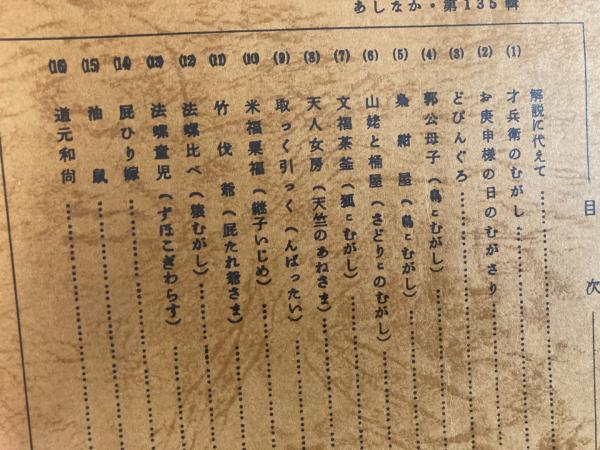 あしなか・第135輯
目次
解説に代えて
(1) 才兵衛のむがし
(2) お庚申様の日のむがさり
(3) どびんぐろ
(4) 郭公母子(鳥コむがし)
(5) 梟紺屋(鳥コむがし)
(6) 山姥と桶屋(さどりコのむがし)
(7) 文福茶釜(狐コむがし)
(8) 天人女房(天竺のあねさま)
(9) 取っく引っく(んばったい)
(10) 米福粟福(継子いじめ)
(11) 竹伐爺(屁たれ爺さま)
(12) 法螺比べ(狼むがし)
(13) 法螺童児(ずほこぎわらす)
(14) 屁ひり嫁
(15) 油鼠
(16) 道元和尚